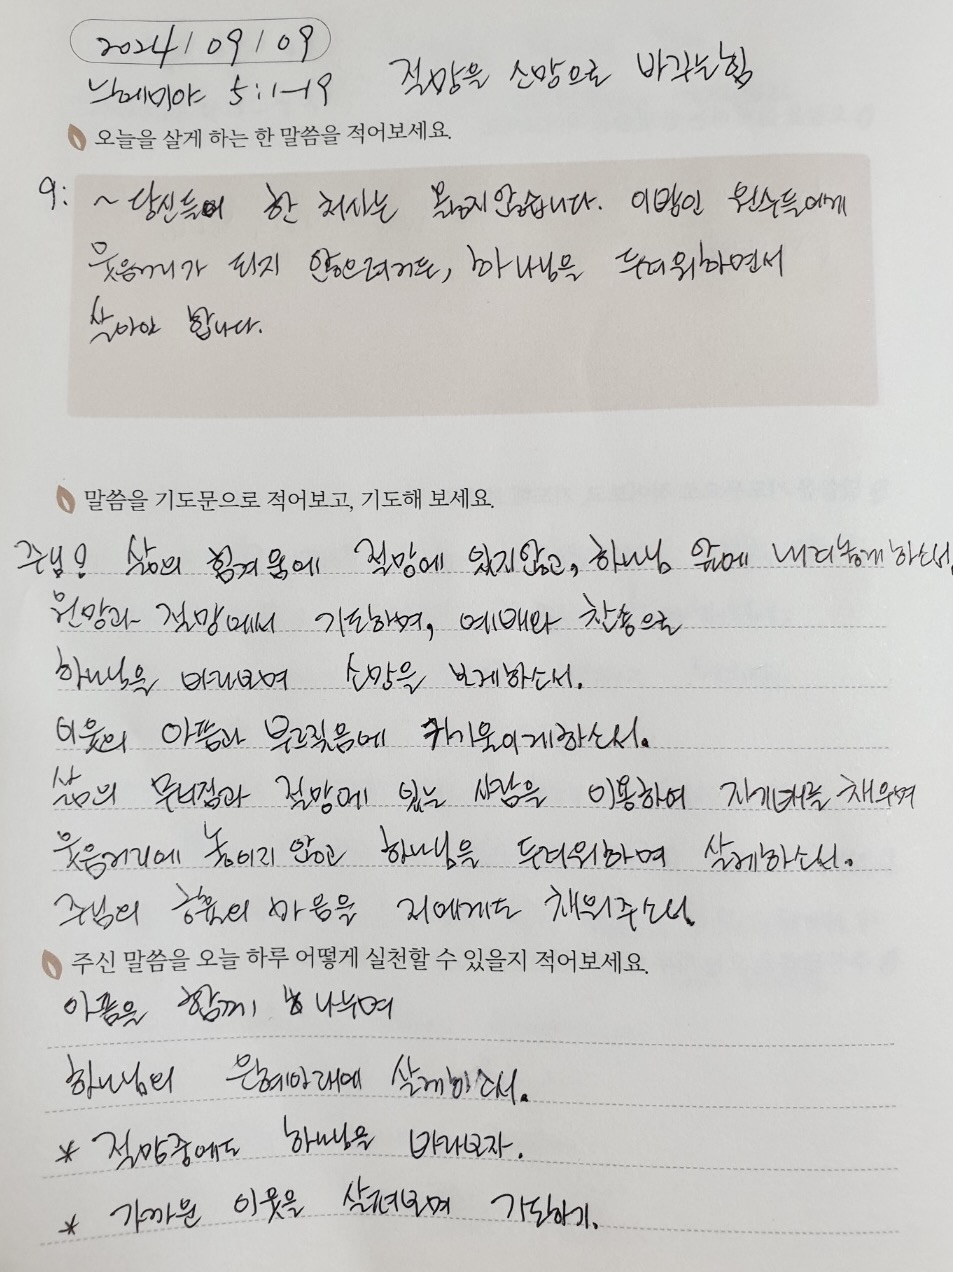 2024/09/09
느헤미야 5:1-19 절망을 소망으로 바꾸는 힘
오늘을 살게 하는 한 말씀을 적어보세요.
9: ~ 당신들이 한 처사는 옳지 않습니다. 이방인 원수들에게
웃음거리가 되지 않으려거든, 하나님을 두려워하면서
살아야 합니다.
말씀을 기도문으로 적어보고, 기도해 보세요.
주님! 삶의 힘겨움에 절망에 있지않고, 하나님 앞에 내려놓게하소서.
원망과 절망에서 기도하며, 예배와 찬송으로
하나님을 바라보며 소망을 보게하소서.
이웃의 아픔과 부르짖음에 귀기울이게하소서.
삶의 무너짐과 절망에 있는 사람을 이용하여 자기배를 채우며
웃음거리에 놓이지 않고 하나님을 두려워하며 살게하소서.
주님의 긍휼의 마음을 저에게도 채워주소서.
주신 말씀을 오늘 하루 어떻게 실천할 수 있을지 적어보세요.
아픔을 함께 나누며
하나님의 은혜아래에 살게하소서.
* 절망중에도 하나님을 바라보자.
* 가까운 이웃을 살펴보며 기도하기.